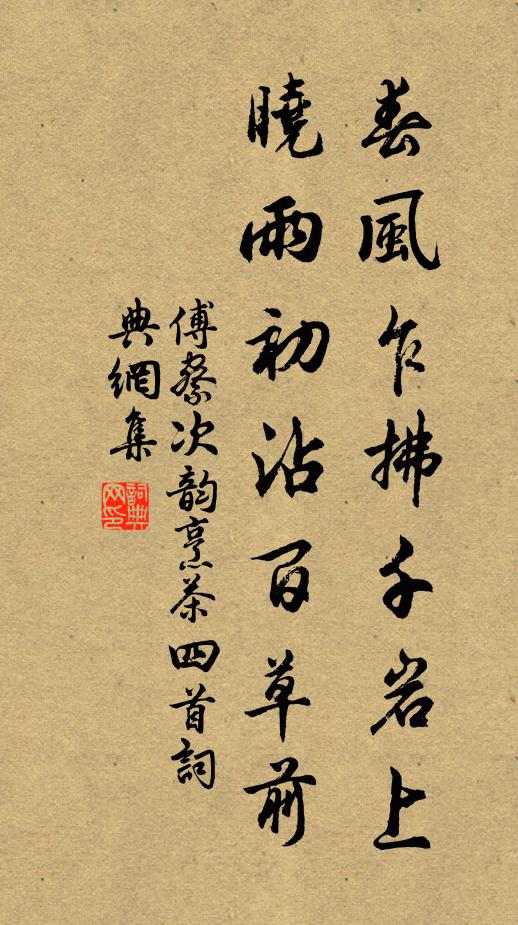 春風乍拂千岩上
曉雨初沾百草前
傅察次韵烹茶四首詞
典網集
詞典網印